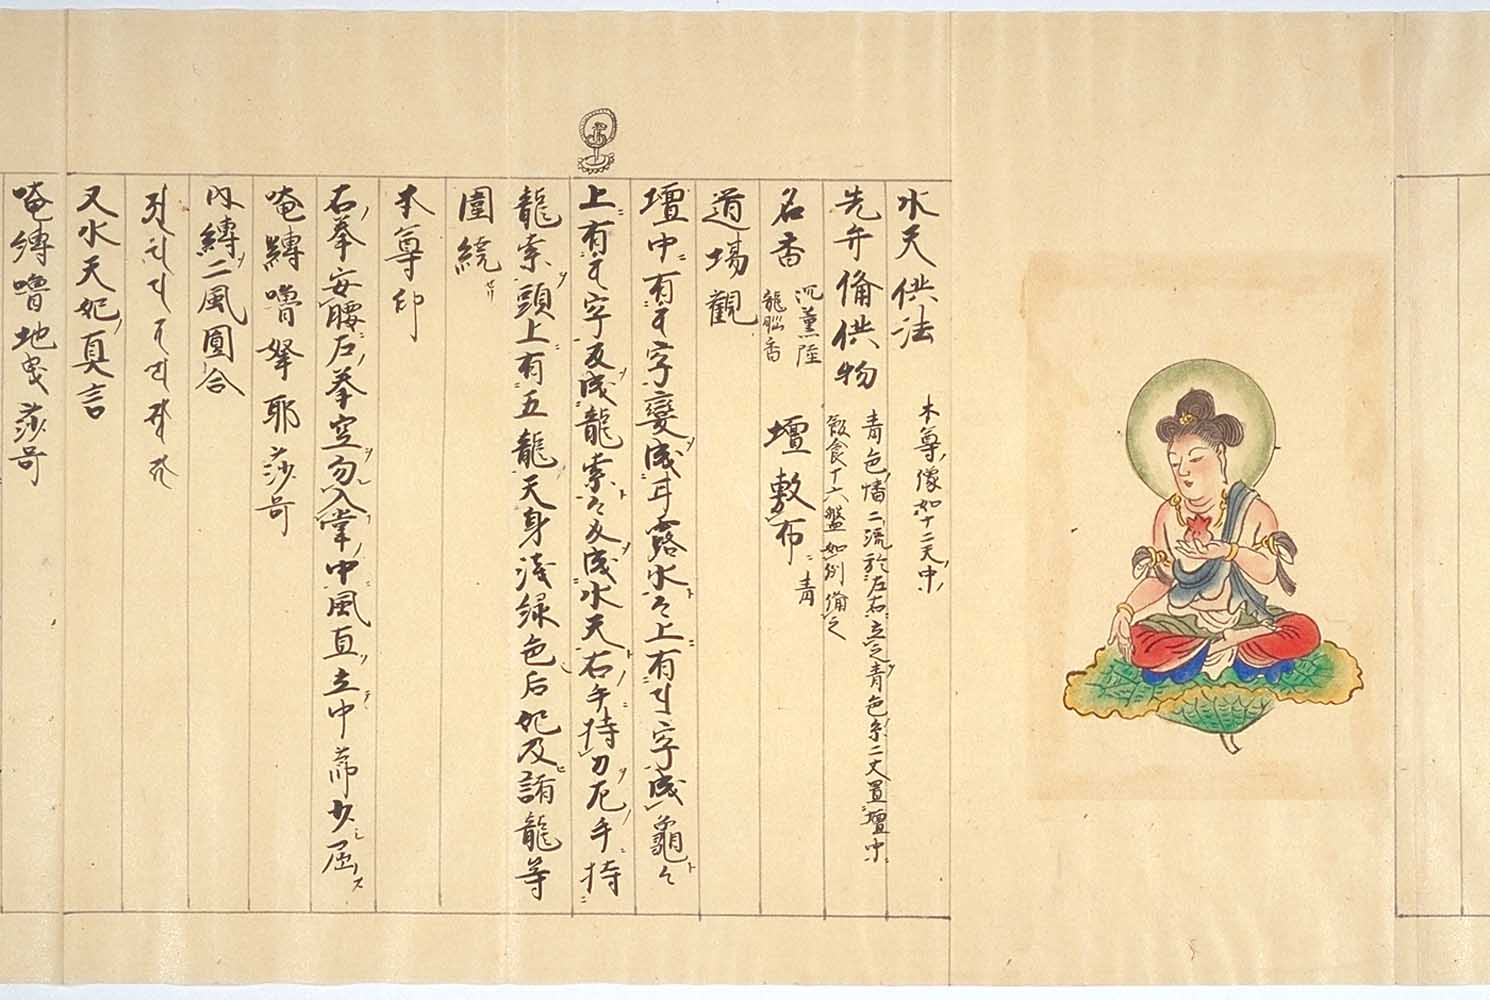 水天供法 本尊像如十二天中
先弁備供物 青色幡二流於左右立之青色糸二丈置壇中
飯食十六盤如例備之
名香 沉薫陸
龍脳香 壇敷布 青
道場觀
壇中有 字變成甘露水々上有 字成龜々
上有 字反成龍索々反成水天右手持刀左手持
龍索頭上有五龍天身淺緑色后妃及諸龍等
圍繞セリ
本尊印
右拳安腰左拳空勿入掌中風直立中節少屈
唵縛嚕拏耶莎呵
内縛二風圓合
又水天妃真言
唵縛嚕地曳莎呵